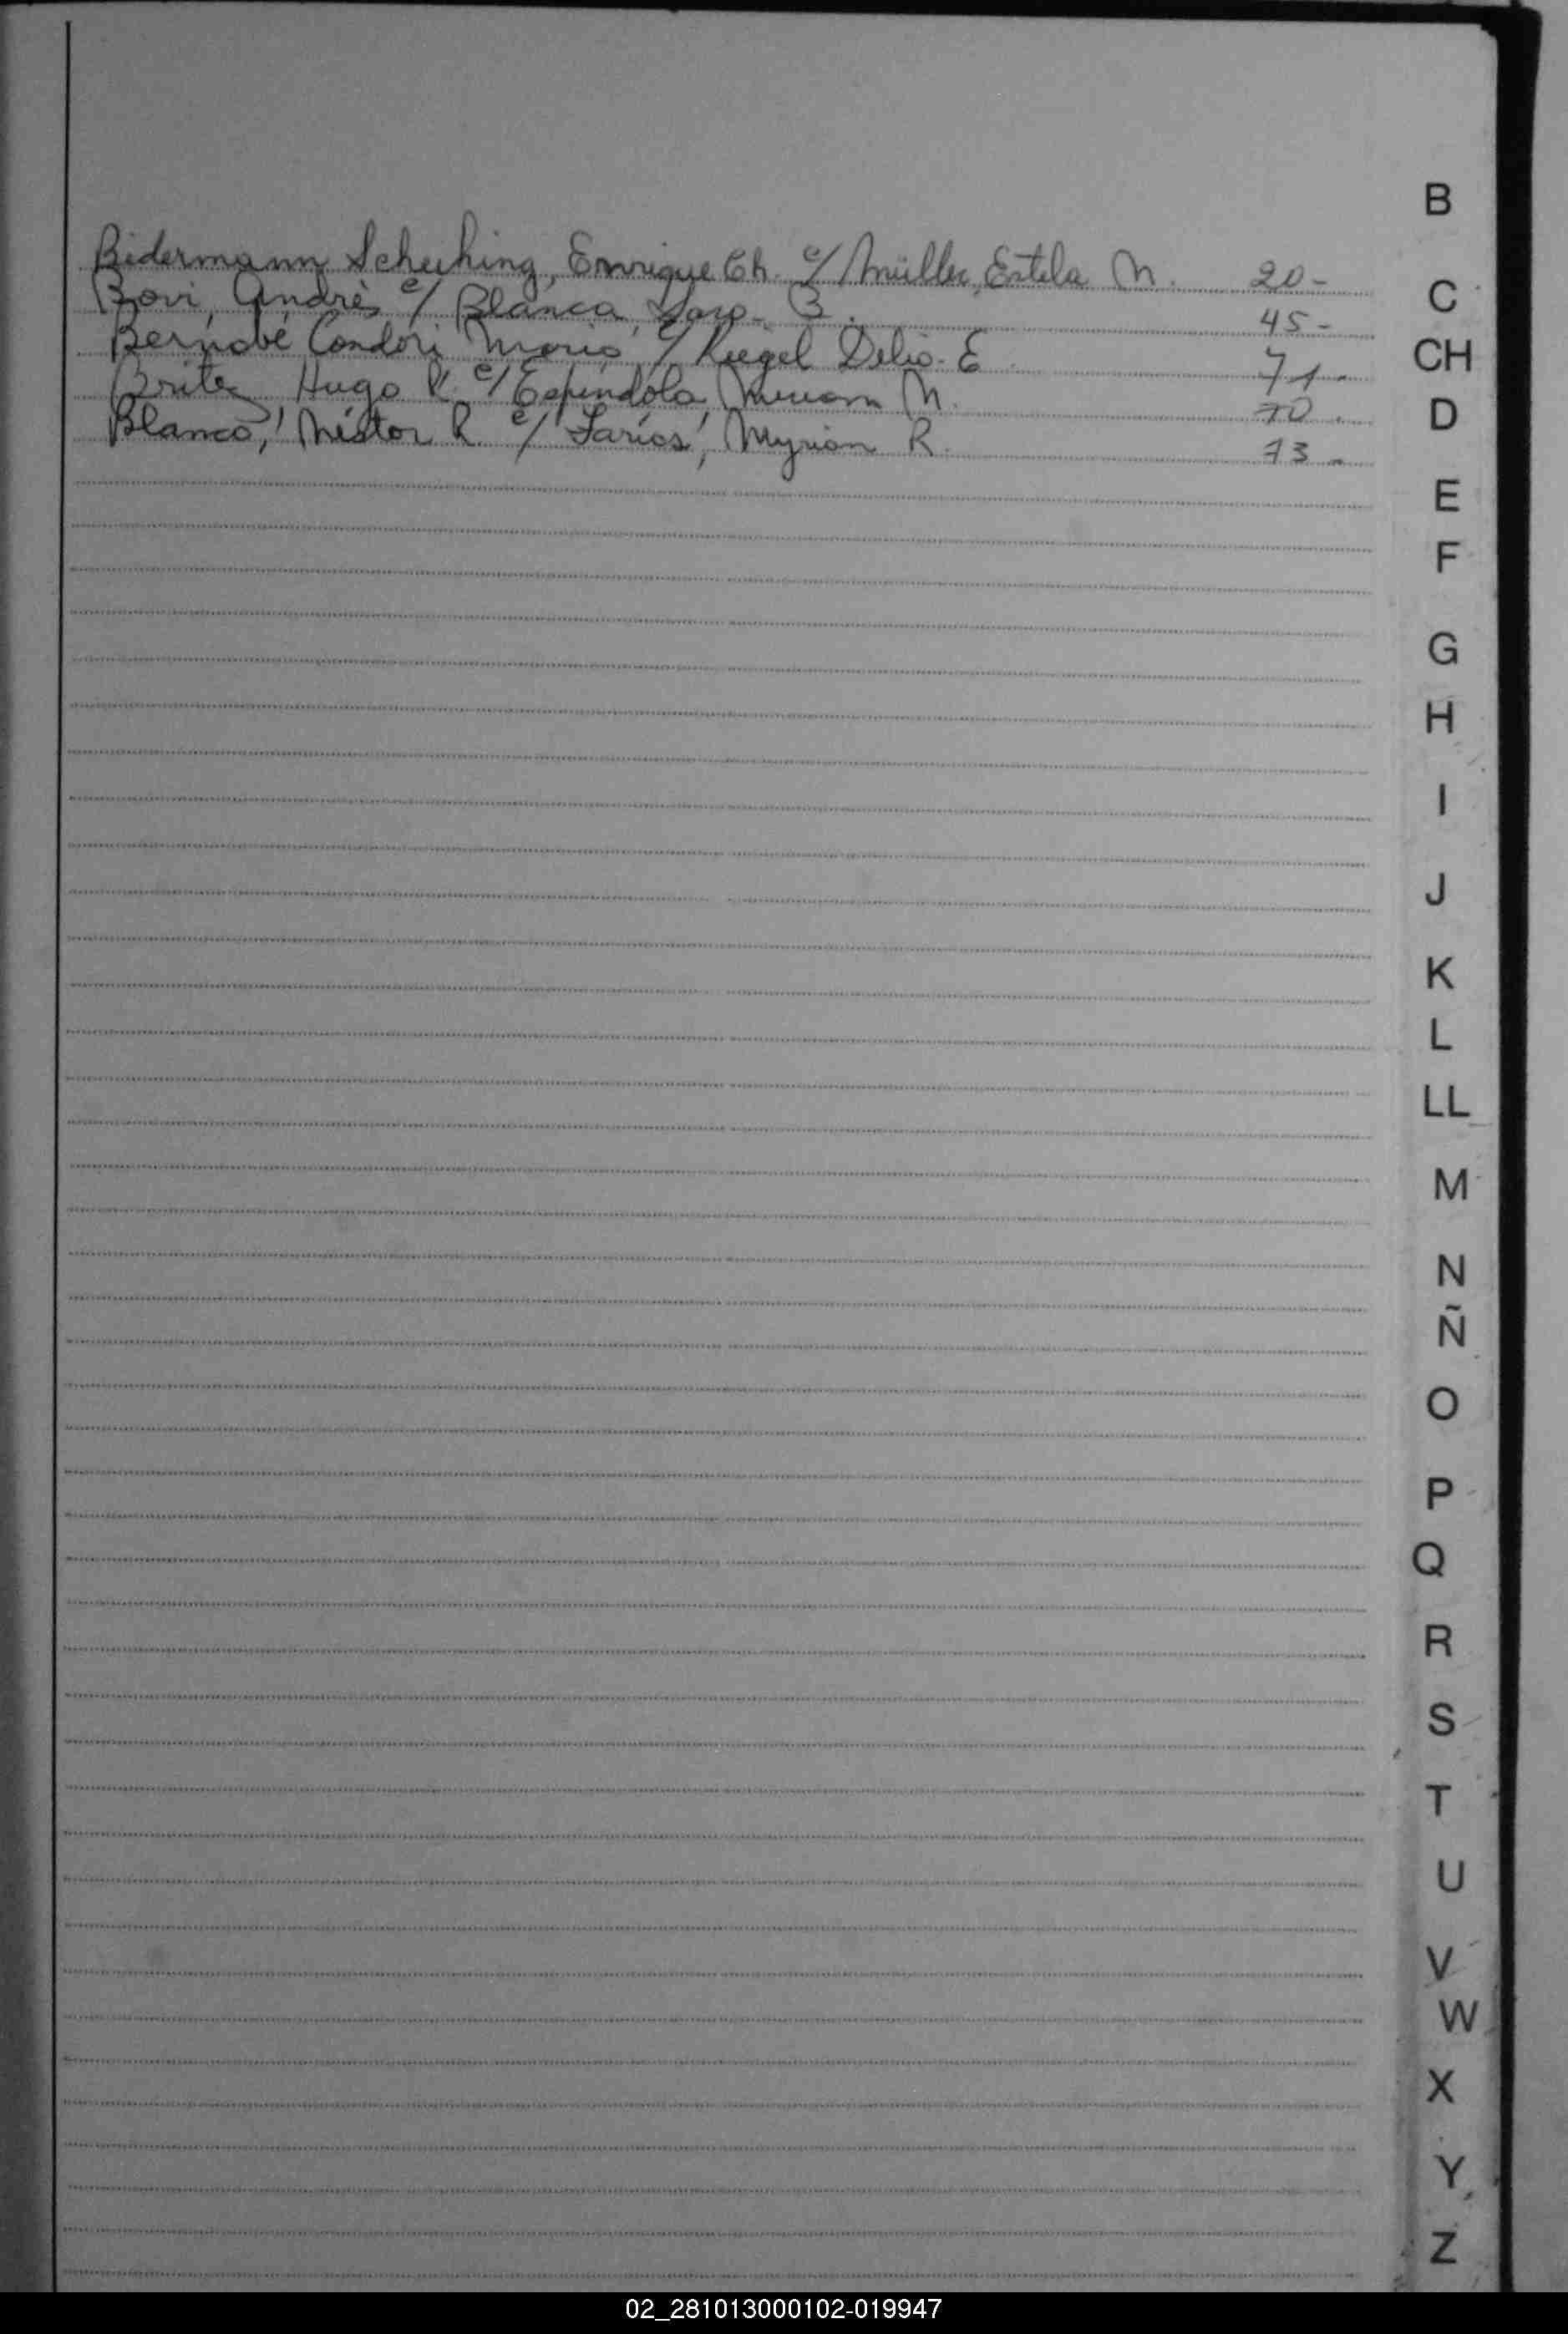 Bidermann Scheihing, Enrique Ch. c/ Müller, Estela M. 20-
Bovi, Andrés c/ Blanca, Sara B. 45-
Bernabé Condori Mario c/ Riegel Delia E. 71-
Britez Hugo R. c/ Espíndola Miriam M. 70.
Blanco, Néstor R. c/ Farías, Myrian R. 73-
B
C
CH
D
E
F
G
H
I
J
K
L
LL
M
N
Ñ
O
P
Q
R
S
T
U
V
W
X
Y
Z
02_281013000102-019947